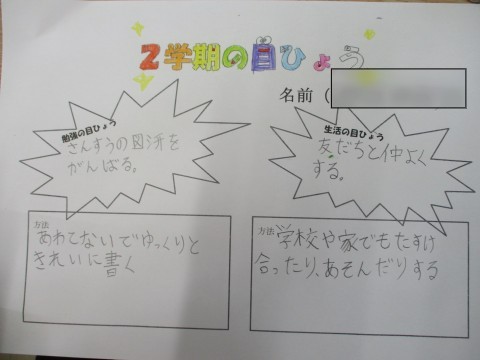 2学期の目ひょう
名前(
勉強の目ひょう
さんすうの図形を
がんばる。
生活の目ひょう
友だちと仲よく
する。
方法
あわてないでゆっくりと
きれいに書く
方法
学校や家でもたすけ
合ったり、あそんだりする